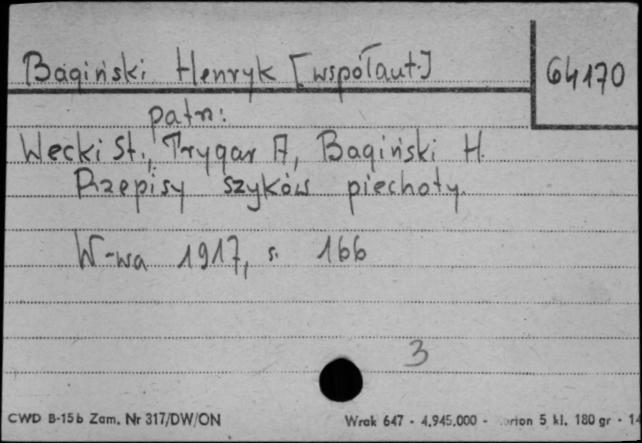 Bagiński Henryk [współaut.]
64170
patrz:
Wecki St., Trygar A, Bagiński H.
Przepisy szyków piechoty.
W-wa 1917, s. 166
3
CWD B-15b Zam. Nr 317/DW/ON
Wrak 647 - 4.945.000 - 5 kl. 180 gr - 1